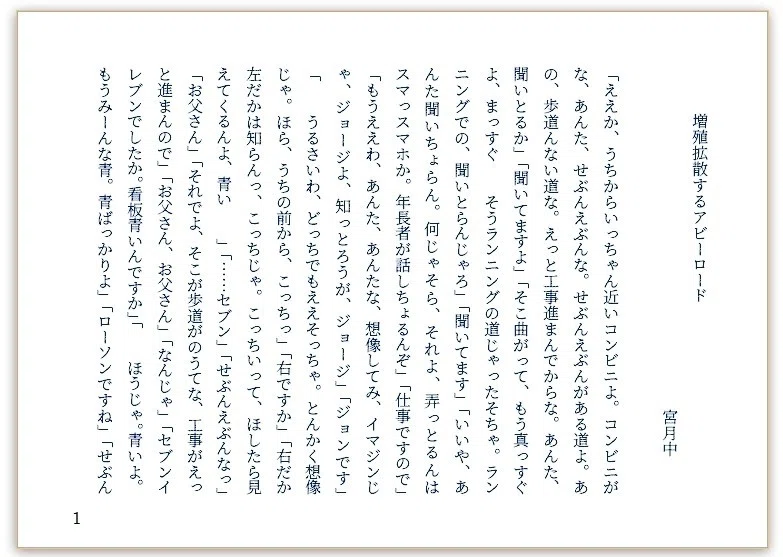 増殖拡散するアビーロード
宮月中
「ええか、うちからいっちゃん近いコンビニよ。コンビニが
な、あんた、せぶんえぶんな。せぶんえぶんがある道よ。あ
の、歩道んない道な。えっと工事進まんでからな。あんた、
聞いとるか」「聞いてますよ」「そこ曲がって、もう真っすぐ
よ、まっすぐ　　そうランニングの道じゃったそちゃ。ラン
ニングでの、聞いとらんじゃろ」「聞いてます」「いいや、あ
んた聞いちょらん。何じゃそら、それよ、弄っとるんは
スマっスマホか。年長者が話しちょるんぞ」「仕事ですので」
「もうええわ、あんた、あんたな、想像してみ、イマジンじ
ゃ、ジョージよ、知っとろうが、ジョージ」「ジョンです」
「　　うるさいわ、どっちでもええそっちゃ。とんかく想像
じゃ。ほら、うちの前から、こっちっ」「右ですか」「右だか
左だかは知らんっ、こっちじゃ。こっちいって、ほしたら見
えてくるんよ、青い　　」「……セブン」「せぶんえぶんなっ」
「お父さん」「それでよ、そこが歩道がのうてな、工事がえっ
と進まんので」「お父さん、お父さん」「なんじゃ」「セブンイ
レブンでしたか。看板青いんですか」「　　ほうじゃ。青いよ。
もうみーんな青。青ばっかりよ」「ローソンですね」「せぶん
1